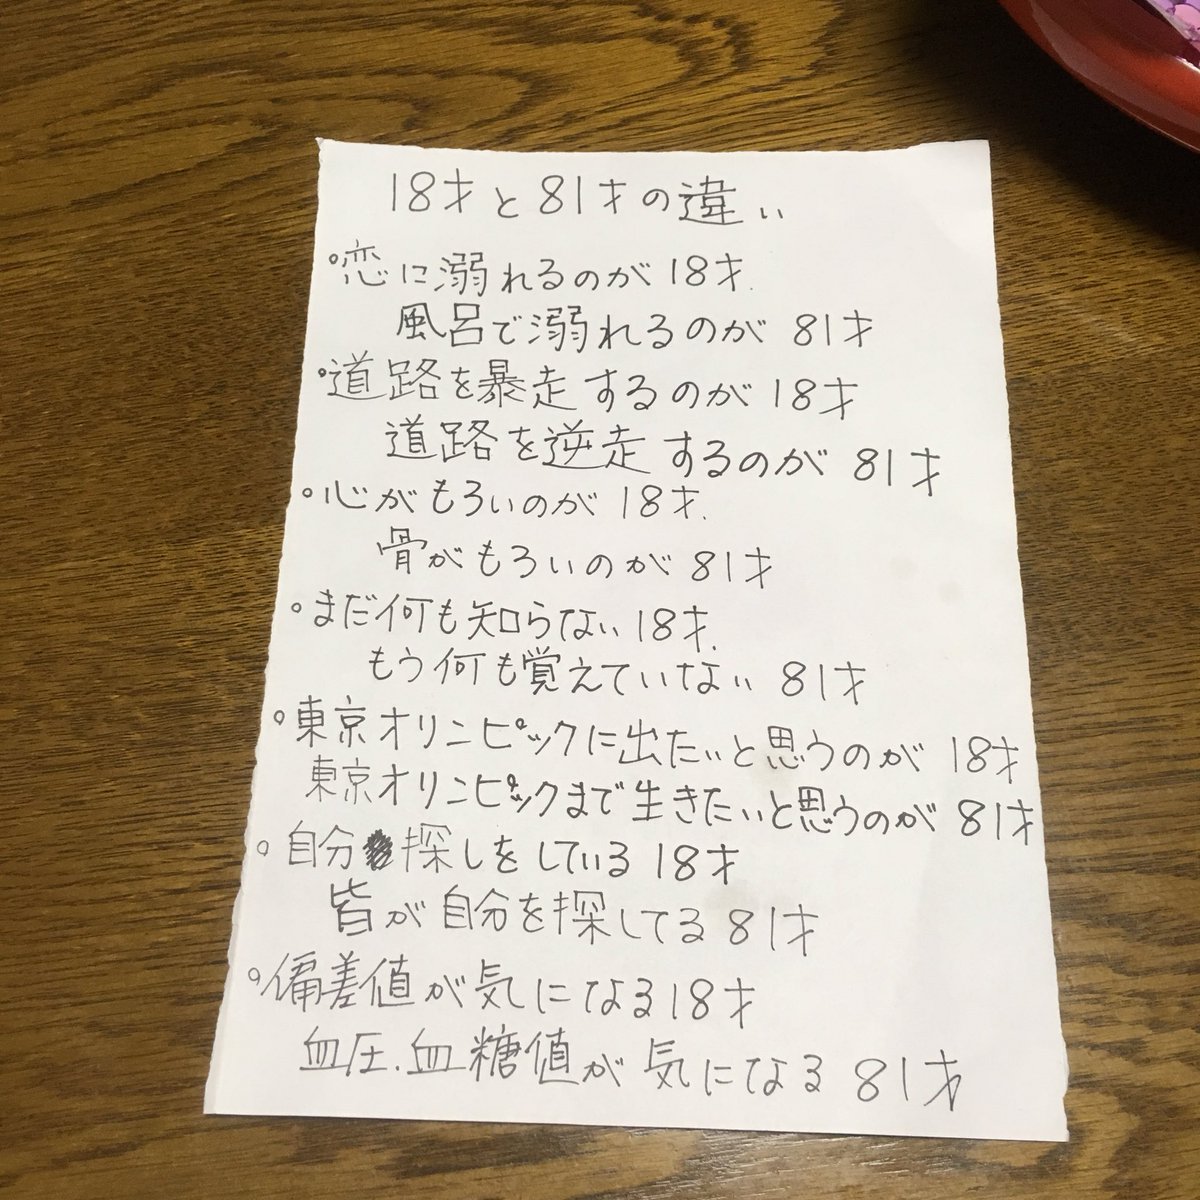 18才と81才の違い
°恋に溺れるのが18才.
風呂で溺れるのが81才
°道路を暴走するのが18才
道路を逆走するのが81才
°心がもろいのが18才.
骨がもろいのが81才
°まだ何も知らない18才.
もう何も覚えていない81才
°東京オリンピックに出たいと思うのが18才
東京オリンピックまで生きたいと思うのが81才
°自分探しをしている18才
皆が自分を探してる81才
°偏差値が気になる18才
血圧.血糖値が気になる81才